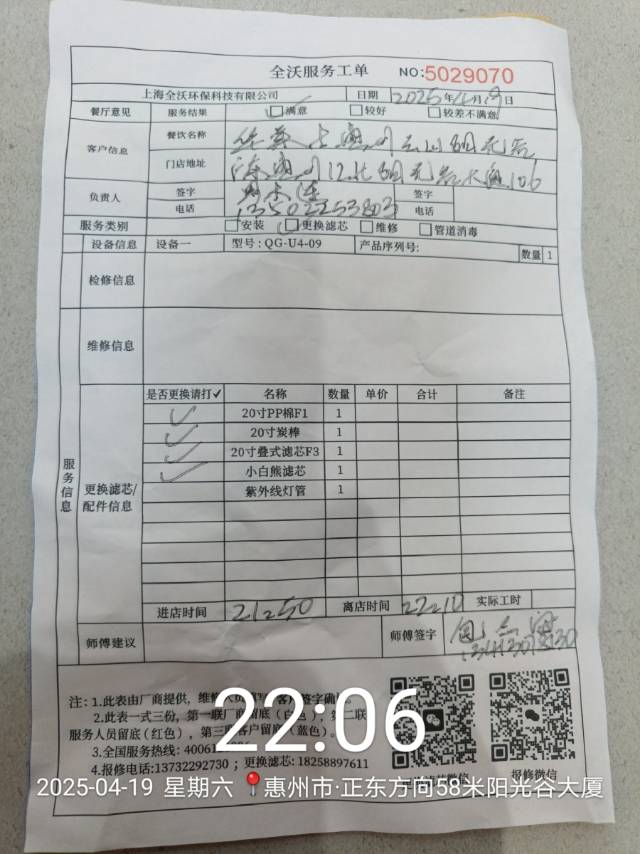 全沃服务工单 NO:5029070
上海全沃环保科技有限公司 日期 2025年4月19日
餐厅意见 服务结果 满意 较好 较差不满意
客户信息 餐饮名称
门店地址
负责人 签字 签字
电话 电话
服务类别 安装 更换滤芯 维修 管道消毒
设备信息 设备一 型号:QG-U4-09 产品序列号: 数量 1
检修信息
维修信息
服务信息
更换滤芯/配件信息
是否更换请打✓ 名称 数量 单价 合计 备注
✓ 20寸PP棉F1 1
✓ 20寸炭棒 1
✓ 20寸叠式滤芯F3 1
✓ 小白熊滤芯 1
紫外线灯管 1
进店时间 21:50 离店时间 22:10 实际工时
师傅建议 师傅签字
注:1.此表由厂商提供,维修
2.此表一式三份,第一联厂商留底(白色),第二联
服务人员留底(红色),第三联客户留底(蓝色)。
3.全国服务热线:
4.报修电话:13732292730;更换滤芯:18258897611
报修微信
22:06
2025-04-19 星期六 惠州市·正东方向58米阳光谷大厦